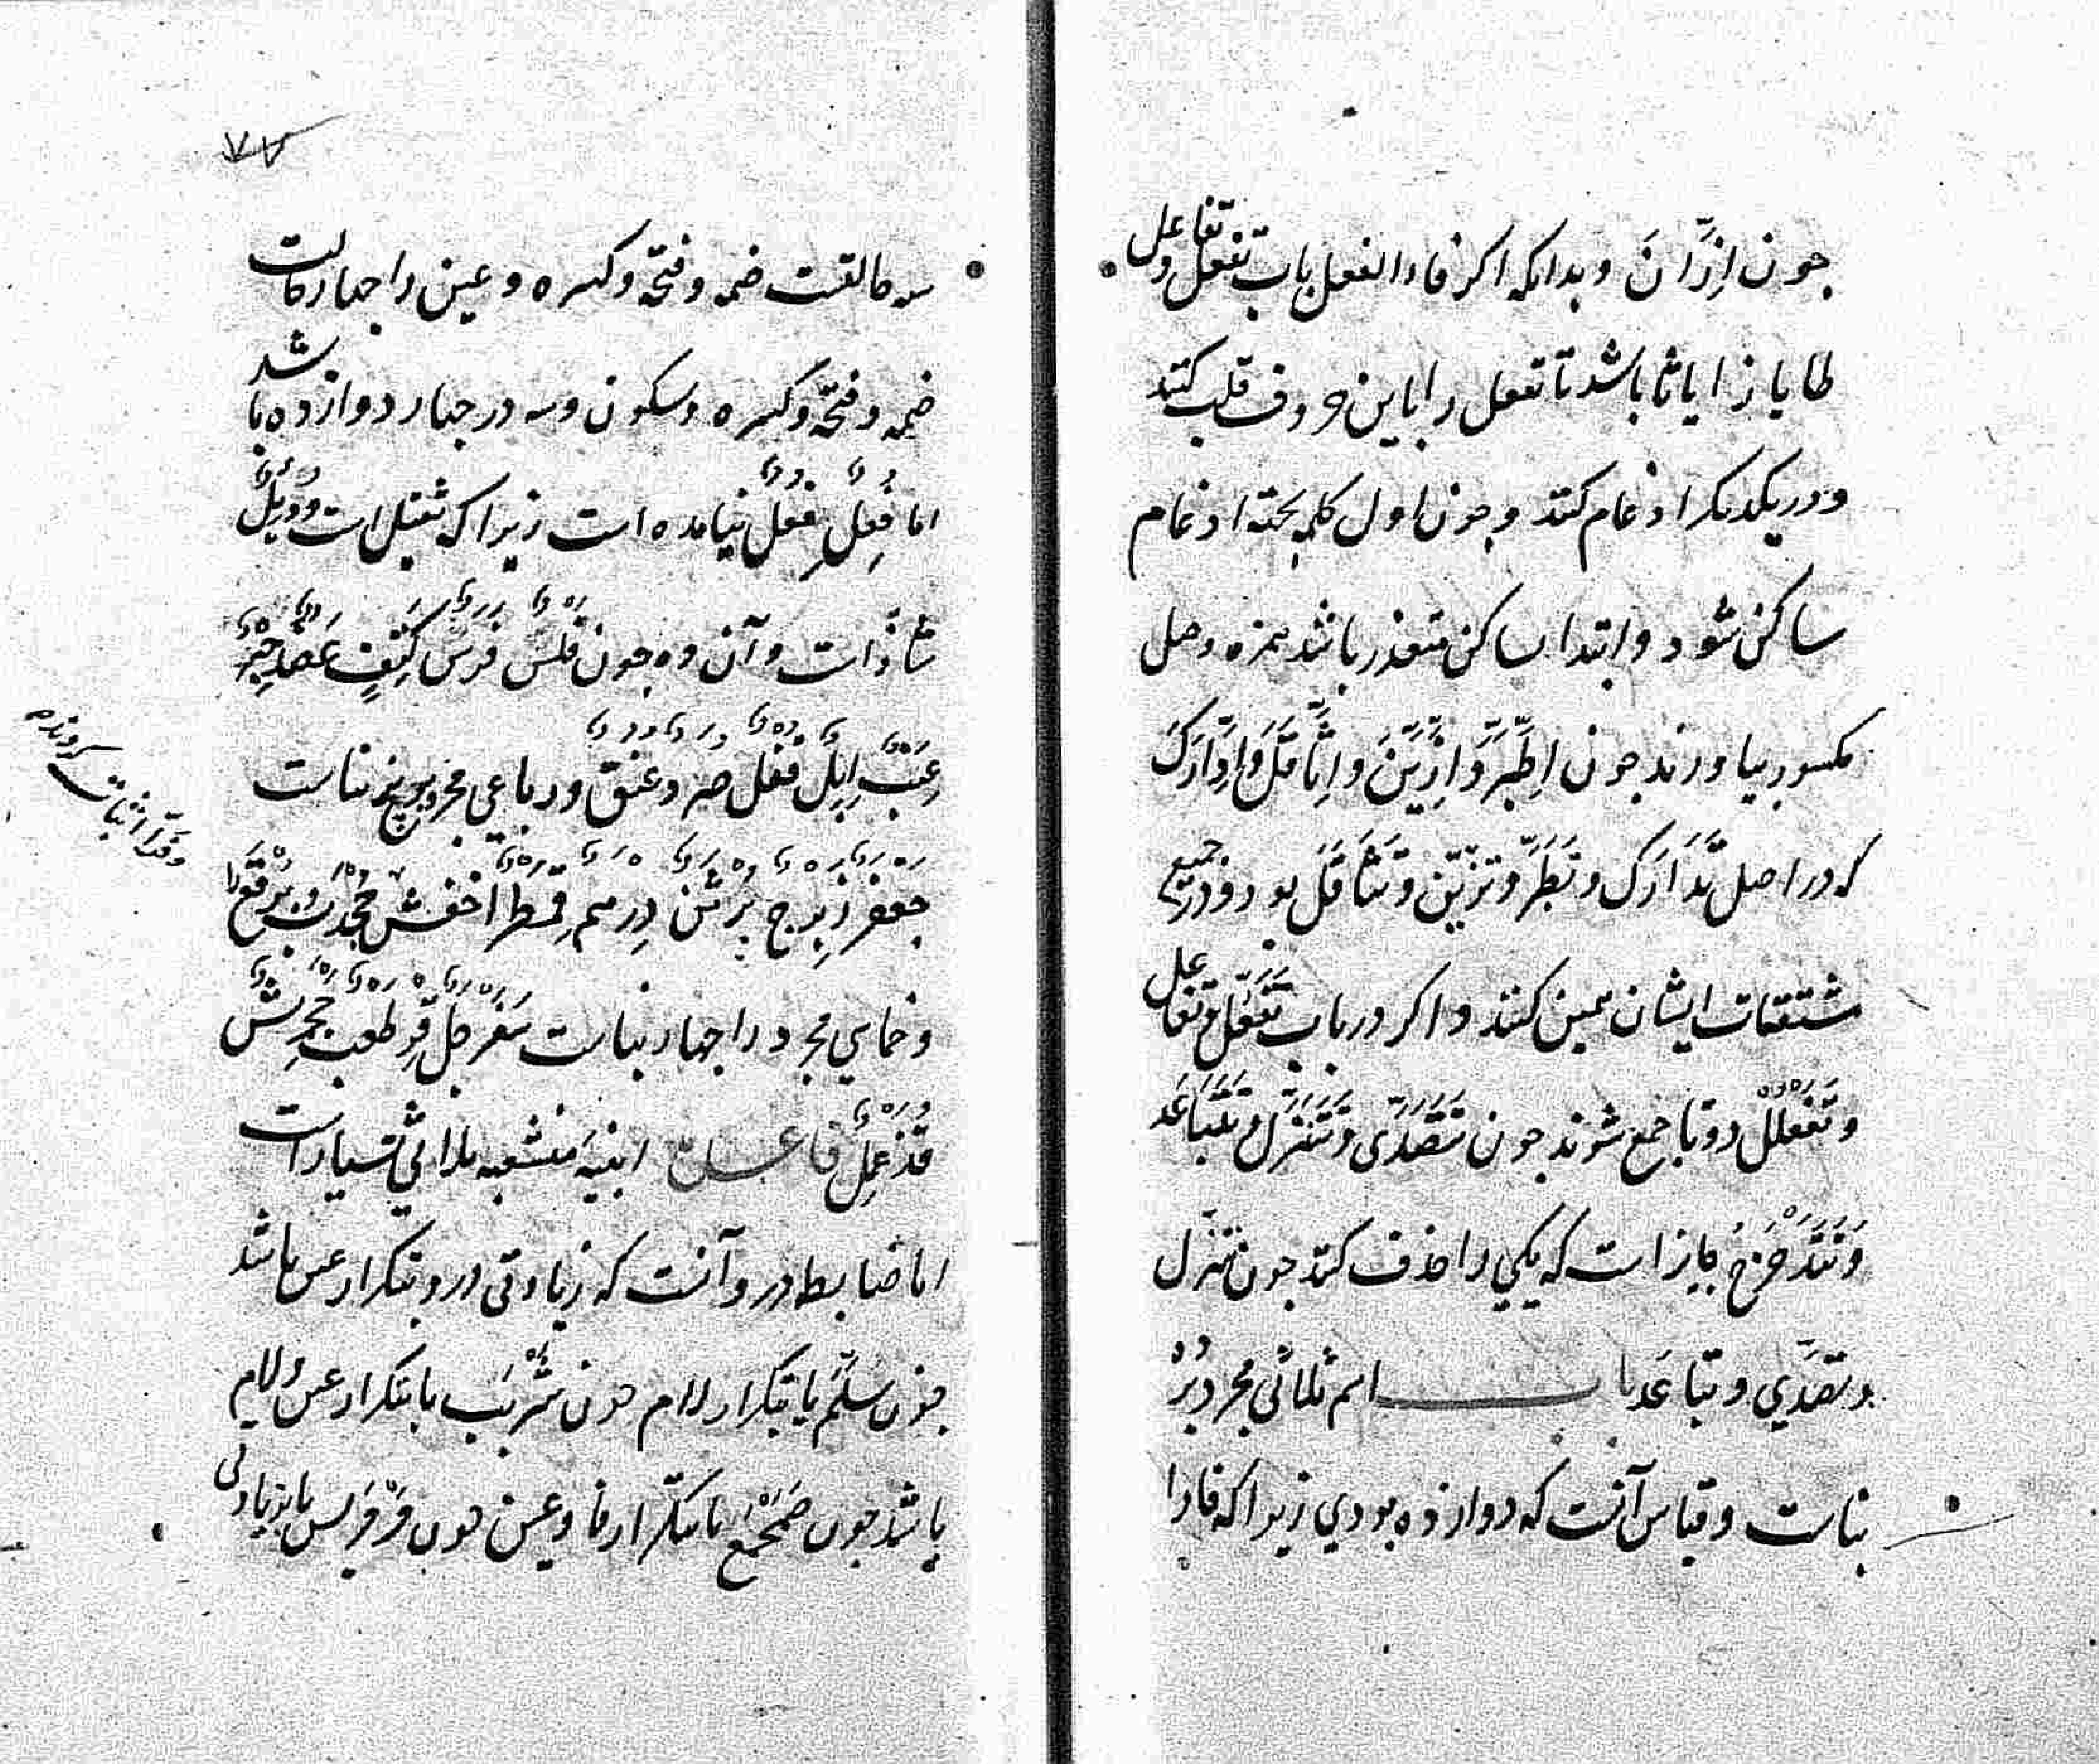 جون اِزَّانَ وبدانکه اکر فاء الفعل باب تفعل وتفاعل
طا یا زا یا ثا باشد تا تفعل را باین حروف قلب کنند
ودر یکدیکر ادغام کنند وجون اول کلمه بجهة ادغام
ساکن شود وابتدا بساکن متعذر باشد همزه وصل
مکسور بیاورند جون اِطَّهَّرَ وَازَّیَّنَ وَاِثَّاقَلَ وَاِدَّارَکَ
که در اصل تَدَارَک وتَطَهَّرَ وتَزَیَّن وتَثَاقَلَ بود ودر جمیع
مشتقات ایشان همین کنند واکر در باب تَفَعُّل وتفاعل
وتَفَعْلُل دو تا جمع شوند جون تَتَصَدَّی وَتَتَنَزَّل وتَتَبَاعَد
وَتَتَدَحْرَجُ جایز است که یکی را حذف کنند جون تنزل
وتصَدَّی وتبَاعَد باب اسم ثلاثی مجرد را ده
بناست وقیاس آنست که دوازده بودی زیرا که فا را
۷۷
سه حالتست ضمه وفتحه وکسره وعین را جهار حالت
ضمه وفتحه وکسره وسکون وسه در جهار دوازده باشد
اما فُعِل فِعُل نیامده است زیرا که ثقیل است ودُئِل
شاذ است وآن ده جون فَلْس فَرَس کَتِف عَضُد حِبْر
عِنَب اِبِل قُفْل صُرَد عُنُق ورباعی مجرد را پنج بناست
جَعْفَر زِبْرِج بُرْثُن دِرْهَم قِمَطْر اخفش جُخْدَب وبُرْقَع را
وقد اثبات کردند
وخماسی مجرد را جهار بناست سَفَرْجَل قِرْطَعْب جَحْمَرِش
قُذَعْمِل ابنیه منشعبه ثلاثی بسیار است
اما ضابطه در و آنست که زیادتی درو بتکرار عین باشد
جون سُلَّم یا بتکرار لام جون شُرْبَب یا بتکرار عین ولام
باشد جون صَمَحْمَح یا بتکرار فا وعین جون مَرْمَرِیس یا بزیادتی